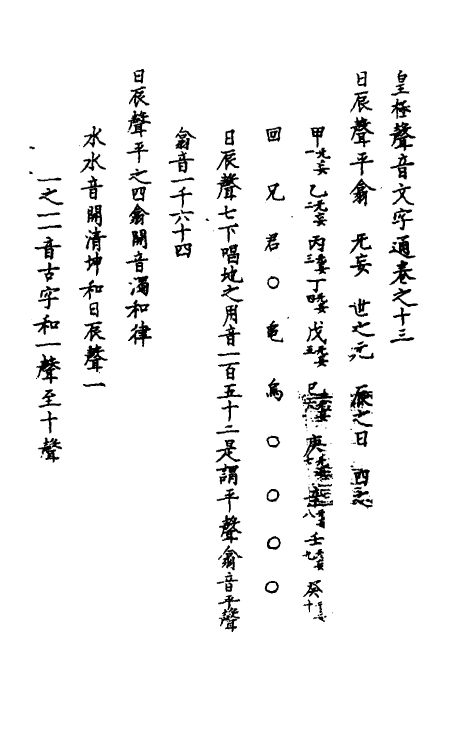 皇極聲音文字通卷之十三
日辰聲平翕　无妄　世之元　之日
甲一无妄乙二无妄丙三无妄丁四无妄戊五无妄己庚辛八壬九无妄癸十无妄
回兄君〇龜烏〇〇〇〇
日辰聲七下唱地之用音一百五十二是謂平聲翕音平聲
翕音一千六十四
日辰聲平之四翕開音濁和律
水水音開清坤和日辰聲一
一之一一音古字和一聲至十聲